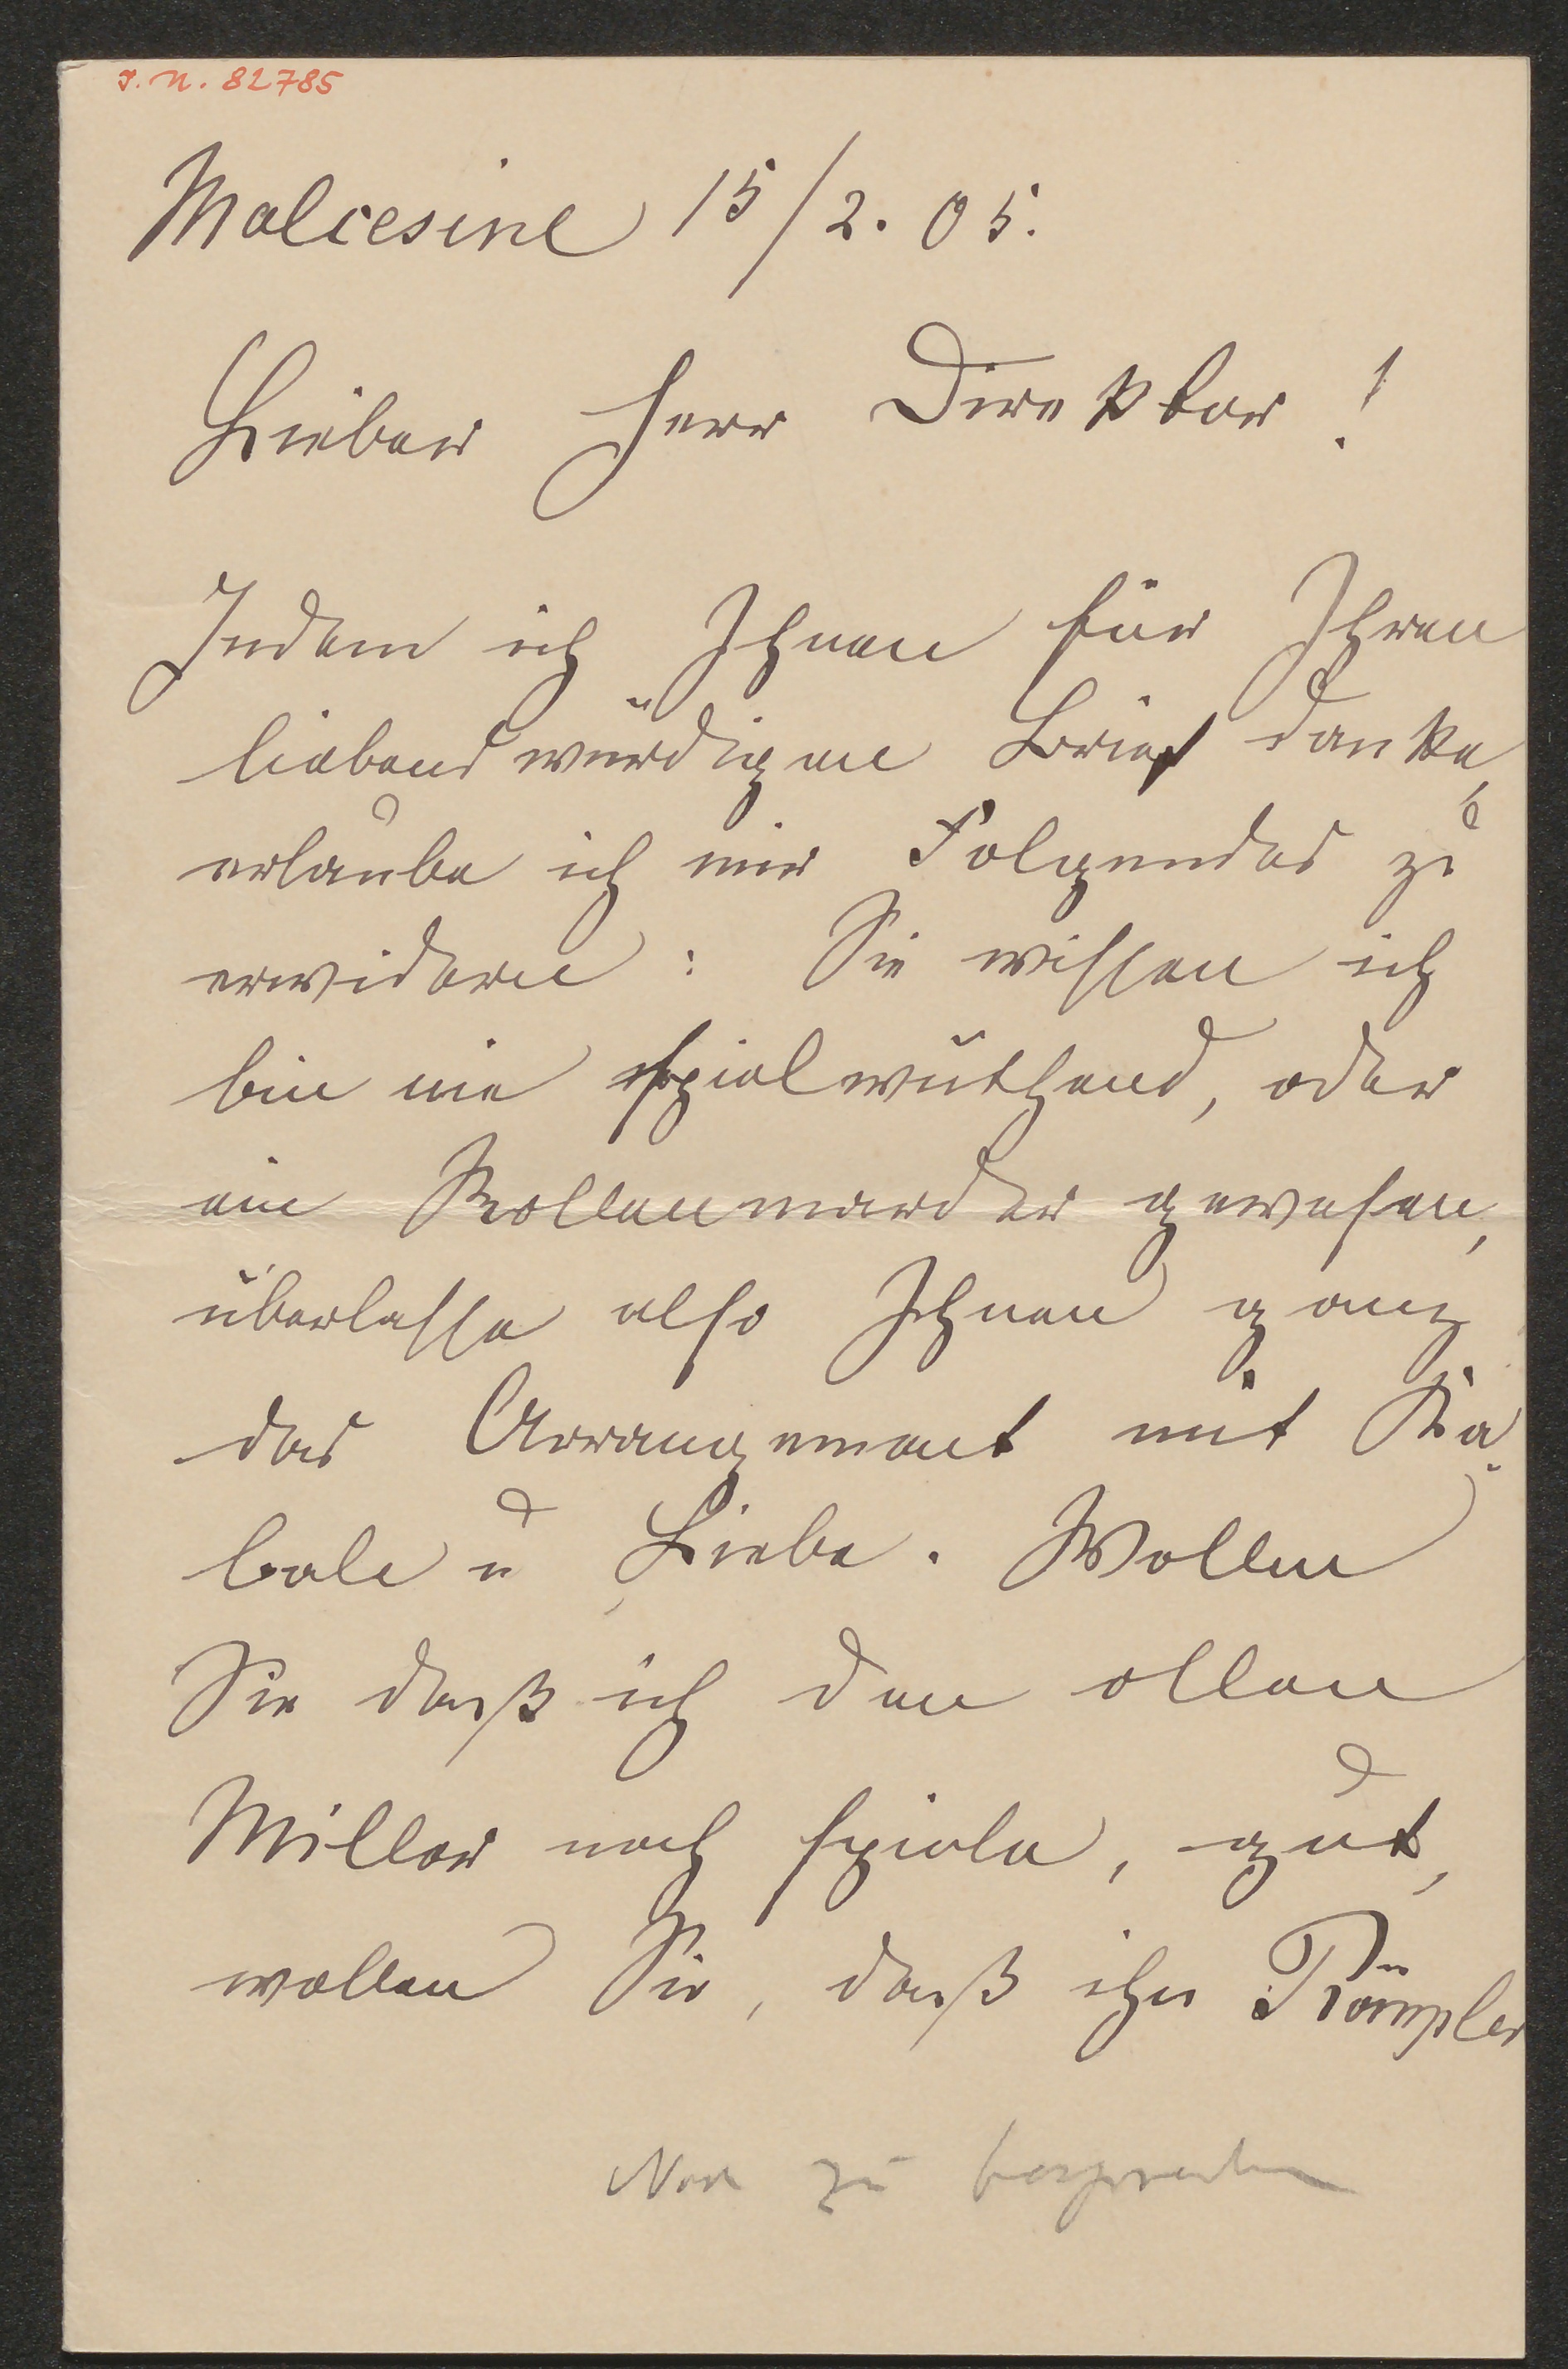 I.N. 82785
Malcesine 15/2. 05.
Lieber Herr Direktor!
Indem ich Ihnen für Ihren
liebenswürdigen Brief danke,
erlaube ich mir Folgendes zu
erwidern: Sie wissen ich
bin nie spielwüthend, oder
ein Rollenmarder gewesen,
überlasse also Ihnen ganz
das Arrangement mit Ka-
bale u Liebe. Wollen
Sie daß ich den ollen
Miller noch spiele, gut,
wollen Sie, daß ihn Römpler
zu besprechen